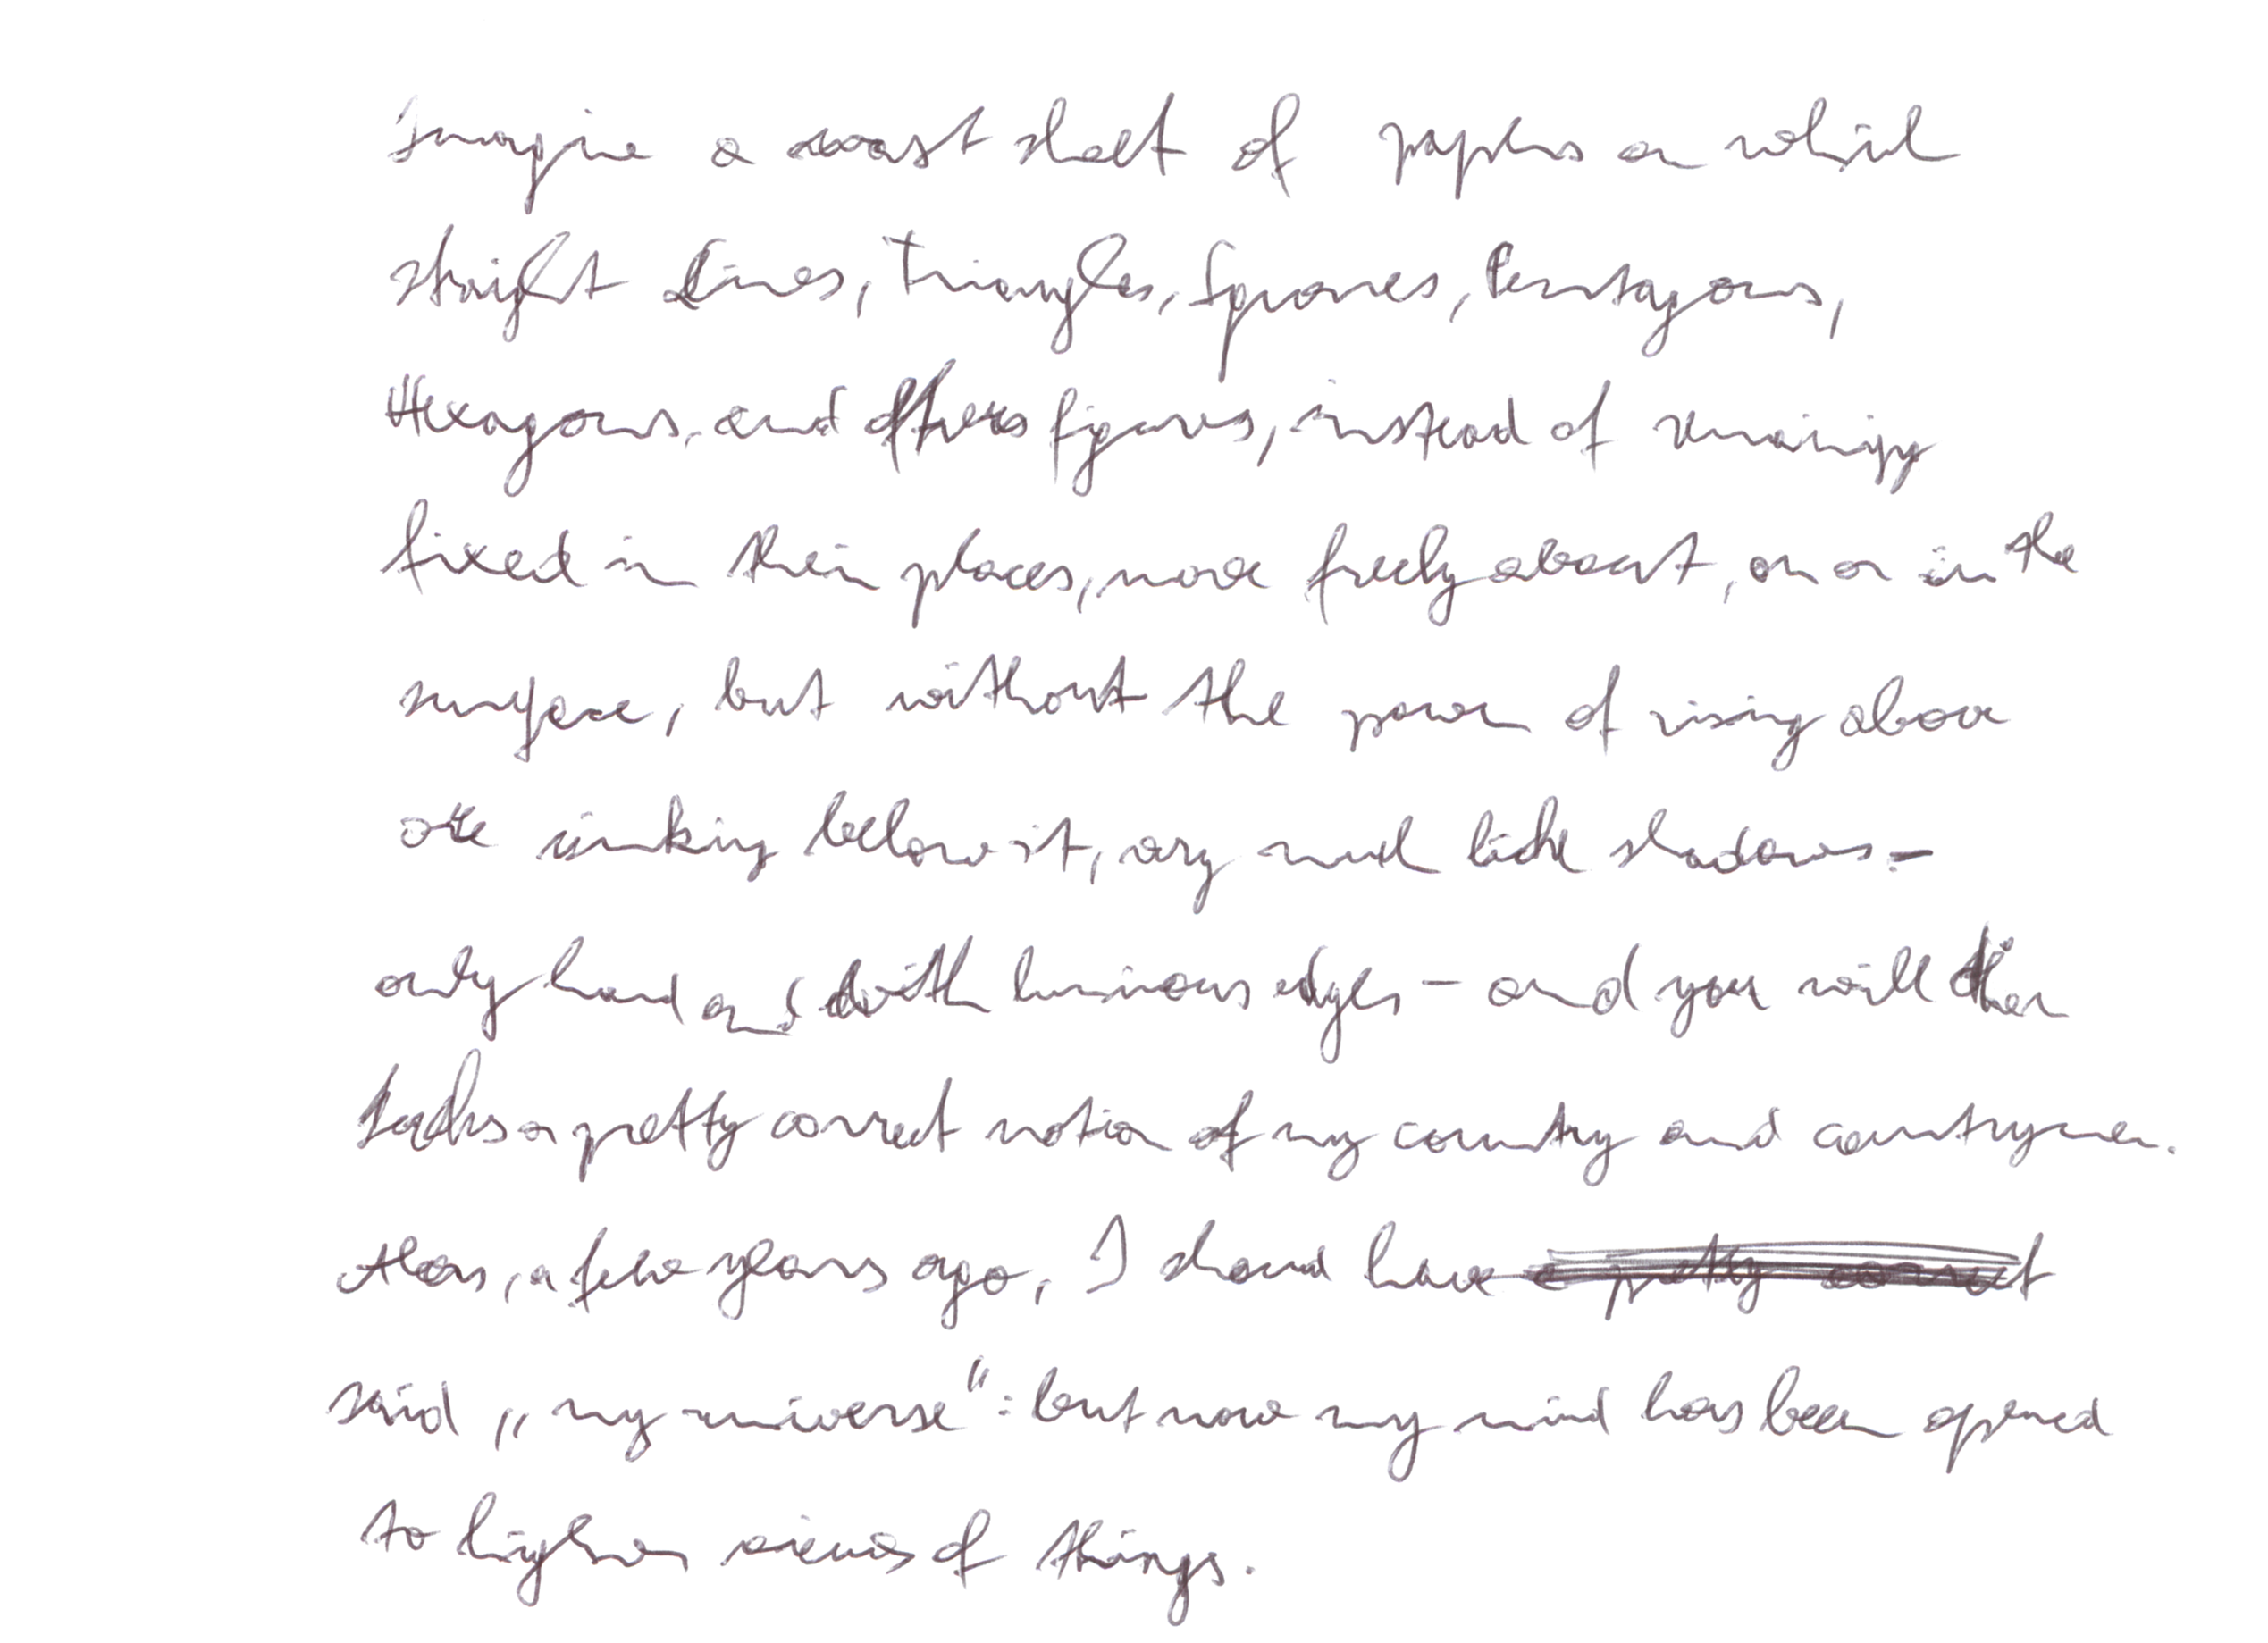 Imagine a vast sheet of paper on which
straight Lines, Triangles, Squares, Pentagons,
Hexagons, and other figures, instead of remaining
fixed in their places, move freely about, on or in the
surface, but without the power of rising above
or sinking below it, very much like shadows -
only hard and with luminous edges - and you will then
have a pretty correct notion of my country and countrymen.
Alas, a few years ago, I should have a pretty correct
said „my universe“: but now my mind has been opened
to higher views of things.